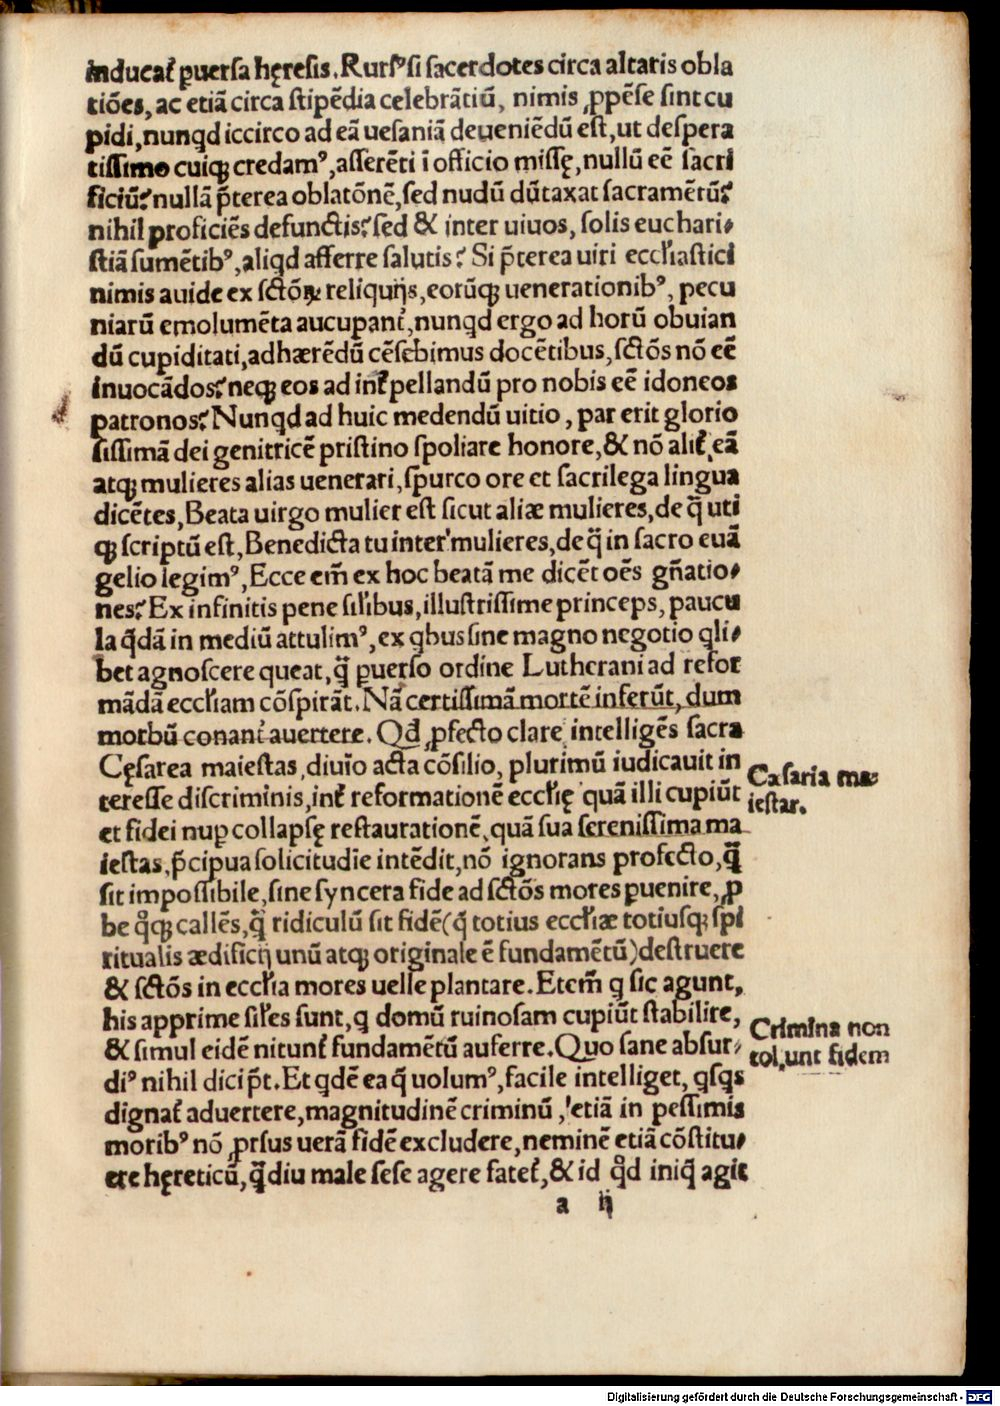 inducat᷑ ꝑuersa hęresis. Rursꝰ si sacerdotes circa altaris obla
tiōes, ac etiā circa stipēdia celebrātiū, nimis ꝓpēse sint cu
pidi, nunqd iccirco ad eā uesaniā deueniēdū est, ut despera
tissimo cuiqꝫ credamꝰ, asserēti ī officio missę, nullū eē sacri
ficiū? nullā p̄terea oblatōnē, sed nudū dūtaxat sacramētū?
nihil proficiēs defunctis? sed & inter uiuos, solis euchari⸗
stiā sumētibꝰ, aliqd afferre salutis? Si p̄terea uiri eccƚiastici
nimis auide ex sctōꝝ reliquijs, eorūqꝫ uenerationibꝰ, pecu
niarū emolumēta aucupant᷑, nunqd ergo ad horū obuian
dū cupiditati, adhærēdū cēsebimus docētibus, sctōs nō eē
inuocādos? neqꝫ eos ad int᷑pellandū pro nobis eē idoneos
patronos? Nunqd ad huic medendū uitio, par erit glorio
sissimā dei genitricē pristino spoliare honore, & nō alit᷑ eā
atqꝫ mulieres alias uenerari, spurco ore et sacrilega lingua
dicētes, Beata uirgo mulier est sicut aliæ mulieres, de q̄ uti
qꝫ scriptū est, Benedicta tu inter mulieres, de q̄ in sacro euā
gelio legimꝰ, Ecce em̄ ex hoc beatā me dicēt oēs gn̄atio⸗
nes? Ex infinitis pene siƚibus, illustrissime princeps, paucu
la q̄dā in mediū attulimꝰ, ex qbus sine magno negotio qli⸗
bet agnoscere queat, q̄ ꝑuerso ordine Lutherani ad refor
mādā eccƚiam cōspirāt. Nā certissimā mortē inferūt, dum
morbū conant᷑ auertere. Qd̄ ꝓfecto clare intelligēs sacra
Cęsarea maiestas, diuīo acta cōsilio, plurimū iudicauit in
teresse discriminis, int᷑ reformationē eccƚię quā illi cupiūt
et fidei nuꝑ collapsę restaurationē, quā sua serenissima ma
iestas, p̄cipua solicitudīe intēdit, nō ignorans profecto, q̄
sit impossibile, sine syncera fide ad sctōs mores ꝑuenire, ꝓ
be qͦqꝫ callēs, q̄ ridiculū sit fidē (q̄ totius eccƚiæ totiusqꝫ spi
ritualis ædificij unū atqꝫ originale ē fundamētū) destruere
& sctōs in eccƚia mores uelle plantare. Etem̄ q sic agunt,
his apprime siƚes sunt, q domū ruinosam cupiūt stabilire,
& simul eidē nitunt᷑ fundamētū auferre. Quo sane absur⸗
diꝰ nihil dici p̄t. Et qdē ea q̄ uolumꝰ, facile intelliget, qsqs
dignat᷑ aduertere, magnitudinē criminū, etiā in pessimis
moribꝰ nō ꝓrsus uerā fidē excludere, neminē etiā cōstitu⸗
ere hęreticū, q̄diu male sese agere fatet᷑, & id qͦd iniq̄ agit
a ij
Cæsaria ma⸗
iestas.
Crimina non
tollunt fidem
Digitalisierung gefördert durch die Deutsche Forschungsgemeinschaft - DFG